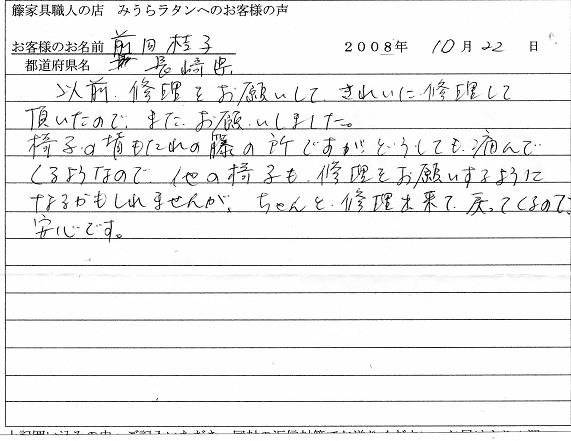 籐家具職人の店 みうらラタンへのお客様の声
お客様のお名前 前田桂子 2008年 10月22日
都道府県名 長崎県
以前、修理をお願いして、きれいに修理して
頂いたので、また、お願いしました。
椅子の背もたれの籐の所ですが、どうしても、痛んで
くるようなので、他の椅子も、修理をお願いするように
なるかもしれませんが、ちゃんと、修理出来て、戻ってくるので、
安心です。